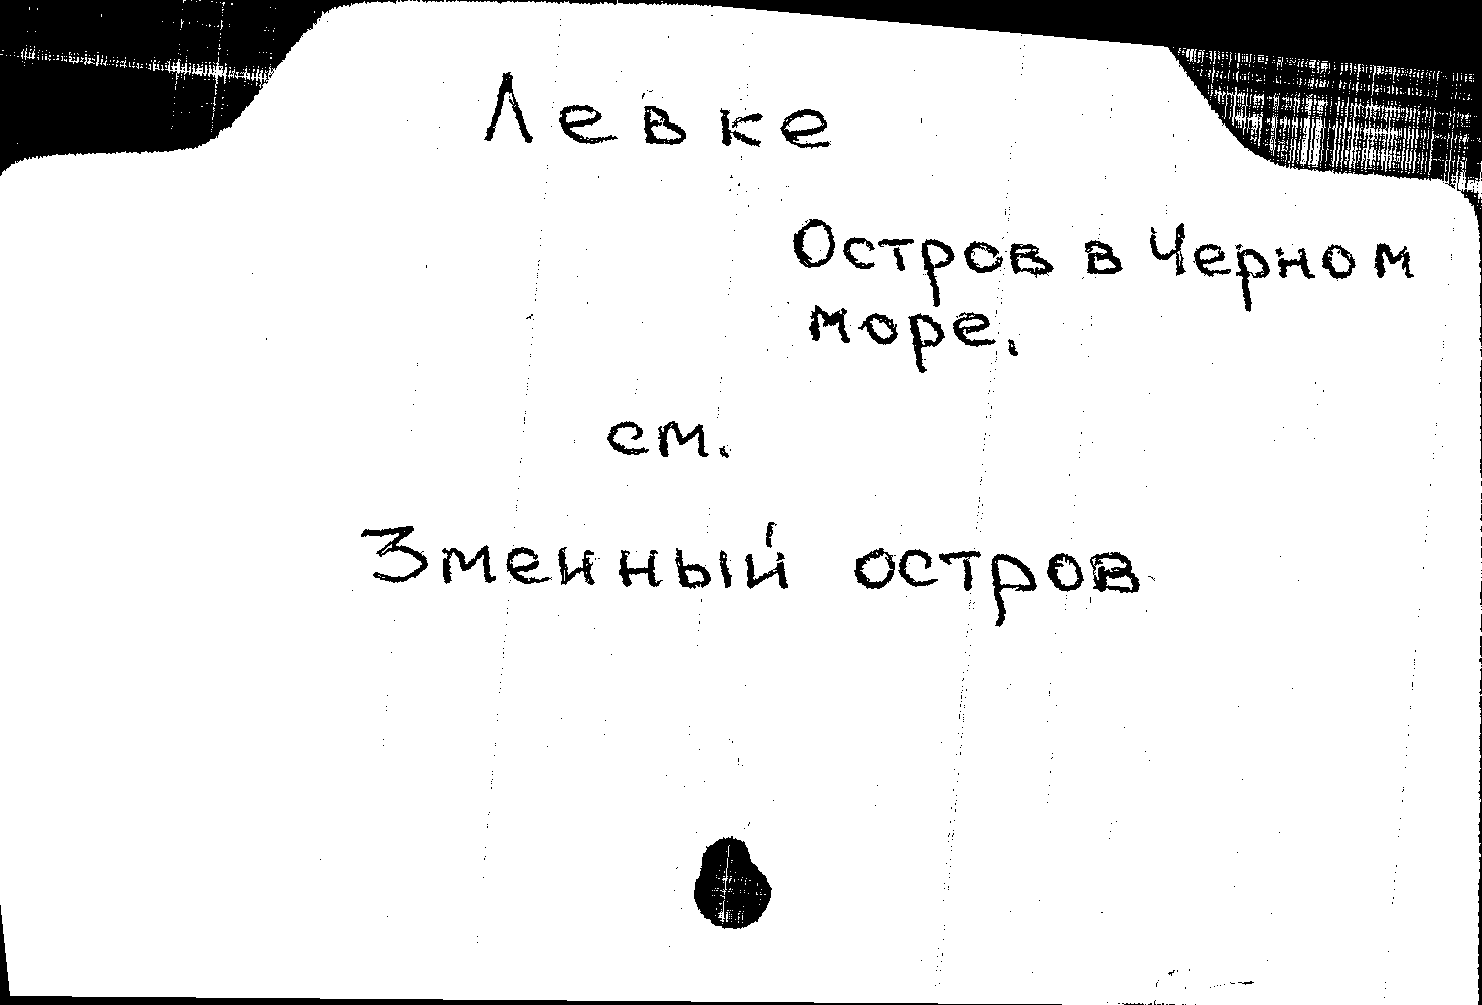 Левке
Остров в Черном
море.
см.
Змеиный остров